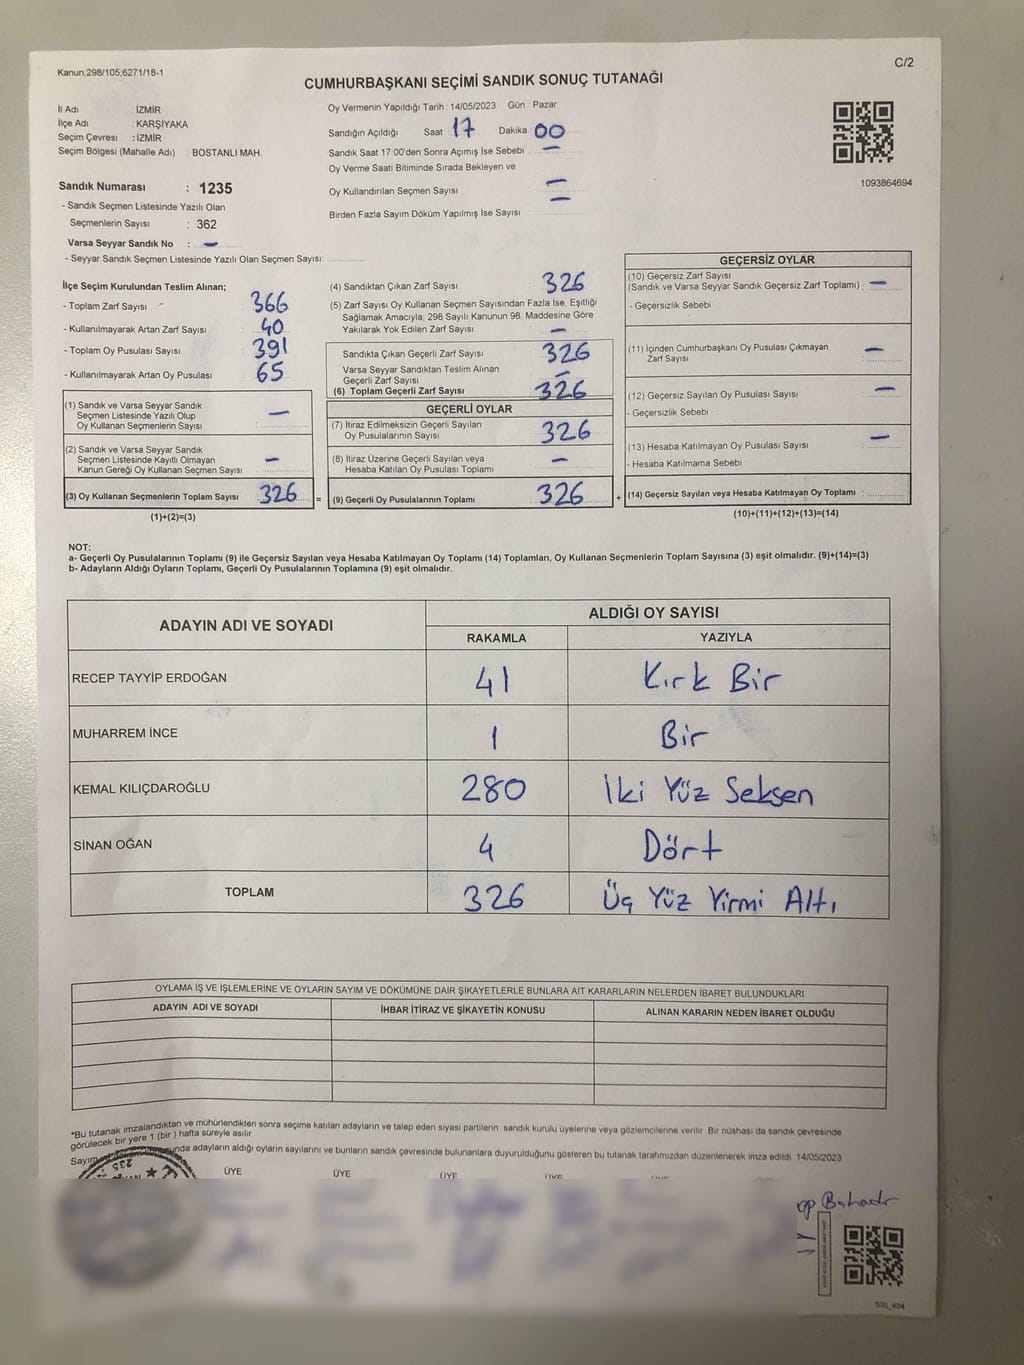 Kanun;298/105;6271/18-1
C/2
CUMHURBAŞKANI SEÇİMİ SANDIK SONUÇ TUTANAĞI
İl Adı : İZMİR
İlçe Adı : KARŞIYAKA
Seçim Çevresi : İZMİR
Seçim Bölgesi (Mahalle Adı) : BOSTANLI MAH.
Sandık Numarası : 1235
- Sandık Seçmen Listesinde Yazılı Olan
Seçmenlerin Sayısı : 362
Varsa Seyyar Sandık No : —
- Seyyar Sandık Seçmen Listesinde Yazılı Olan Seçmen Sayısı:
Oy Vermenin Yapıldığı Tarih : 14/05/2023 Gün : Pazar
Sandığın Açıldığı Saat 17 Dakika 00
Sandık Saat 17:00'den Sonra Açımış İse Sebebi : —
Oy Verme Saati Bitiminde Sırada Bekleyen ve
Oy Kullandırılan Seçmen Sayısı —
Birden Fazla Sayım Döküm Yapılmış İse Sayısı : —
1093864694
İlçe Seçim Kurulundan Teslim Alınan;
- Toplam Zarf Sayısı : 366
- Kullanılmayarak Artan Zarf Sayısı : 40
- Toplam Oy Pusulası Sayısı : 391
- Kullanılmayarak Artan Oy Pusulası : 65
(1) Sandık ve Varsa Seyyar Sandık
Seçmen Listesinde Yazılı Olup
Oy Kullanan Seçmenlerin Sayısı : —
(2) Sandık ve Varsa Seyyar Sandık
Seçmen Listesinde Kayıtlı Olmayan
Kanun Gereği Oy Kullanan Seçmen Sayısı : —
(3) Oy Kullanan Seçmenlerin Toplam Sayısı : 326
(1)+(2)=(3)
=
(4) Sandıktan Çıkan Zarf Sayısı : 326
(5) Zarf Sayısı Oy Kullanan Seçmen Sayısından Fazla İse, Eşitliği
Sağlamak Amacıyla; 298 Sayılı Kanunun 98. Maddesine Göre
Yakılarak Yok Edilen Zarf Sayısı : —
Sandıkta Çıkan Geçerli Zarf Sayısı : 326
Varsa Seyyar Sandıktan Teslim Alınan
Geçerli Zarf Sayısı : —
(6) Toplam Geçerli Zarf Sayısı : 326
GEÇERLİ OYLAR
(7) İtiraz Edilmeksizin Geçerli Sayılan
Oy Pusulalarının Sayısı : 326
(8) İtiraz Üzerine Geçerli Sayılan veya
Hesaba Katılan Oy Pusulası Toplamı : —
(9) Geçerli Oy Pusulalarının Toplamı : 326
+
GEÇERSİZ OYLAR
(10) Geçersiz Zarf Sayısı
(Sandık ve Varsa Seyyar Sandık Geçersiz Zarf Toplamı) : —
- Geçersizlik Sebebi :
(11) İçinden Cumhurbaşkanı Oy Pusulası Çıkmayan
Zarf Sayısı : —
(12) Geçersiz Sayılan Oy Pusulası Sayısı : —
- Geçersizlik Sebebi :
(13) Hesaba Katılmayan Oy Pusulası Sayısı : —
- Hesaba Katılmama Sebebi :
(14) Geçersiz Sayılan veya Hesaba Katılmayan Oy Toplamı :
(10)+(11)+(12)+(13)=(14)
NOT:
a- Geçerli Oy Pusulalarının Toplamı (9) ile Geçersiz Sayılan veya Hesaba Katılmayan Oy Toplamı (14) Toplamları, Oy Kullanan Seçmenlerin Toplam Sayısına (3) eşit olmalıdır. (9)+(14)=(3)
b- Adayların Aldığı Oyların Toplamı, Geçerli Oy Pusulalarının Toplamına (9) eşit olmalıdır.
ADAYIN ADI VE SOYADI
ALDIĞI OY SAYISI
RAKAMLA YAZIYLA
RECEP TAYYİP ERDOĞAN 41 Kırk Bir
MUHARREM İNCE 1 Bir
KEMAL KILIÇDAROĞLU 280 İki Yüz Seksen
SİNAN OĞAN 4 Dört
TOPLAM 326 Üç Yüz Yirmi Altı
OYLAMA İŞ VE İŞLEMLERİNE VE OYLARIN SAYIM VE DÖKÜMÜNE DAİR ŞİKAYETLERLE BUNLARA AİT KARARLARIN NELERDEN İBARET BULUNDUKLARI
ADAYIN ADI VE SOYADI İHBAR İTİRAZ VE ŞİKAYETİN KONUSU ALINAN KARARIN NEDEN İBARET OLDUĞU
*Bu tutanak imzalandıktan ve mühürlendikten sonra seçime katılan adayların ve talep eden siyasi partilerin sandık kurulu üyelerine veya gözlemcilerine verilir. Bir nüshası da sandık çevresinde
görülecek bir yere 1 (bir) hafta süreyle asılır.
Sayım adayların aldığı oyların sayılarını ve bunların sandık çevresinde bulunanlara duyurulduğunu gösteren bu tutanak tarafımızdan düzenlenerek imza edildi. 14/05/2023
ÜYE ÜYE ÜYE ÜYE